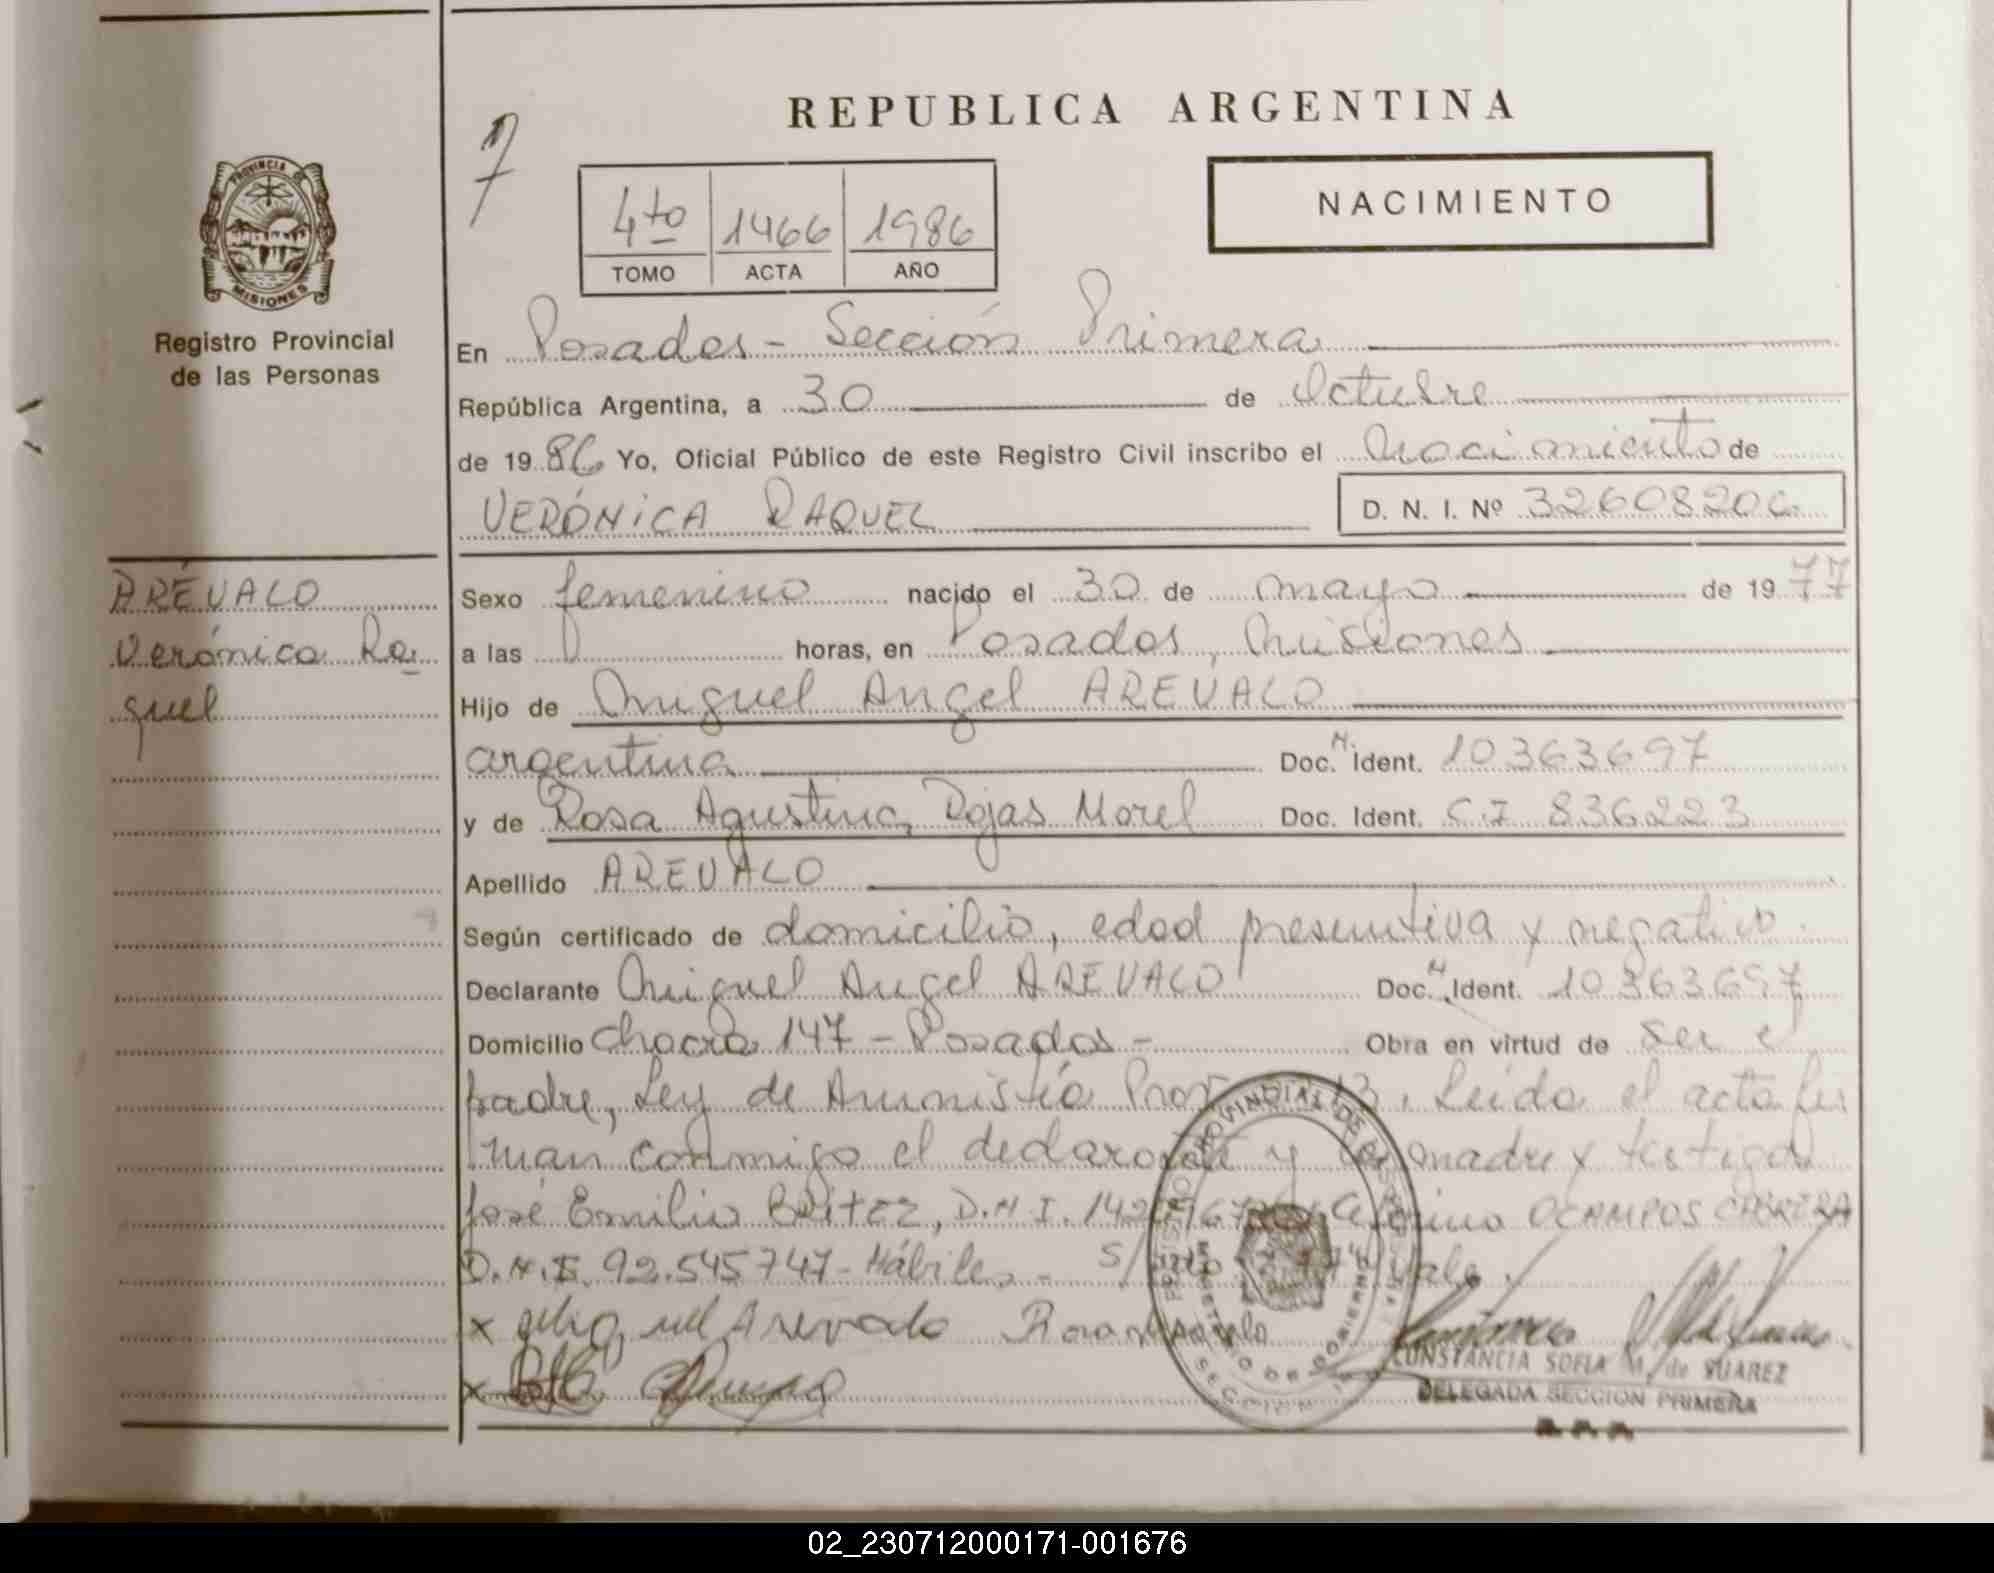 REPUBLICA ARGENTINA
7
4to 1466 1986
TOMO ACTA AÑO
NACIMIENTO
PROVINCIA DE MISIONES
Registro Provincial
de las Personas
En Posadas - Sección Primera
República Argentina, a 30 de Octubre
de 1986 Yo, Oficial Público de este Registro Civil inscribo el nacimiento de
VERÓNICA RAQUEL D. N. I. Nº 32608206
ARÉVALO
Verónica Ra
quel
Sexo femenino nacido el 30 de mayo de 1977
a las horas, en Posadas, Misiones
Hijo de Miguel Angel AREVALO
argentina Doc. N. Ident. 10363697
y de Rosa Agustina Rojas Morel Doc. Ident. C.I 836223
Apellido AREVALO
Según certificado de domicilio, edad presuntiva y negativo.
Declarante Miguel Angel AREVALO Doc. N. Ident. 10363697
Domicilio Chacra 147 - Posadas - Obra en virtud de ser el
padre, Ley de Amnistía Prov. Leída el acta fir
man conmigo el declarante y la madre y testigos
José Emilio Britez, D.N.I. OCAMPOS CABRERA
D.N.I. 92.545747 - Hábiles - S/ vale.
x Arevalo Rosa
x
CONSTANCIA SOFIA M. de SUAREZ
DELEGADA SECCION PRIMERA
02_230712000171-001676